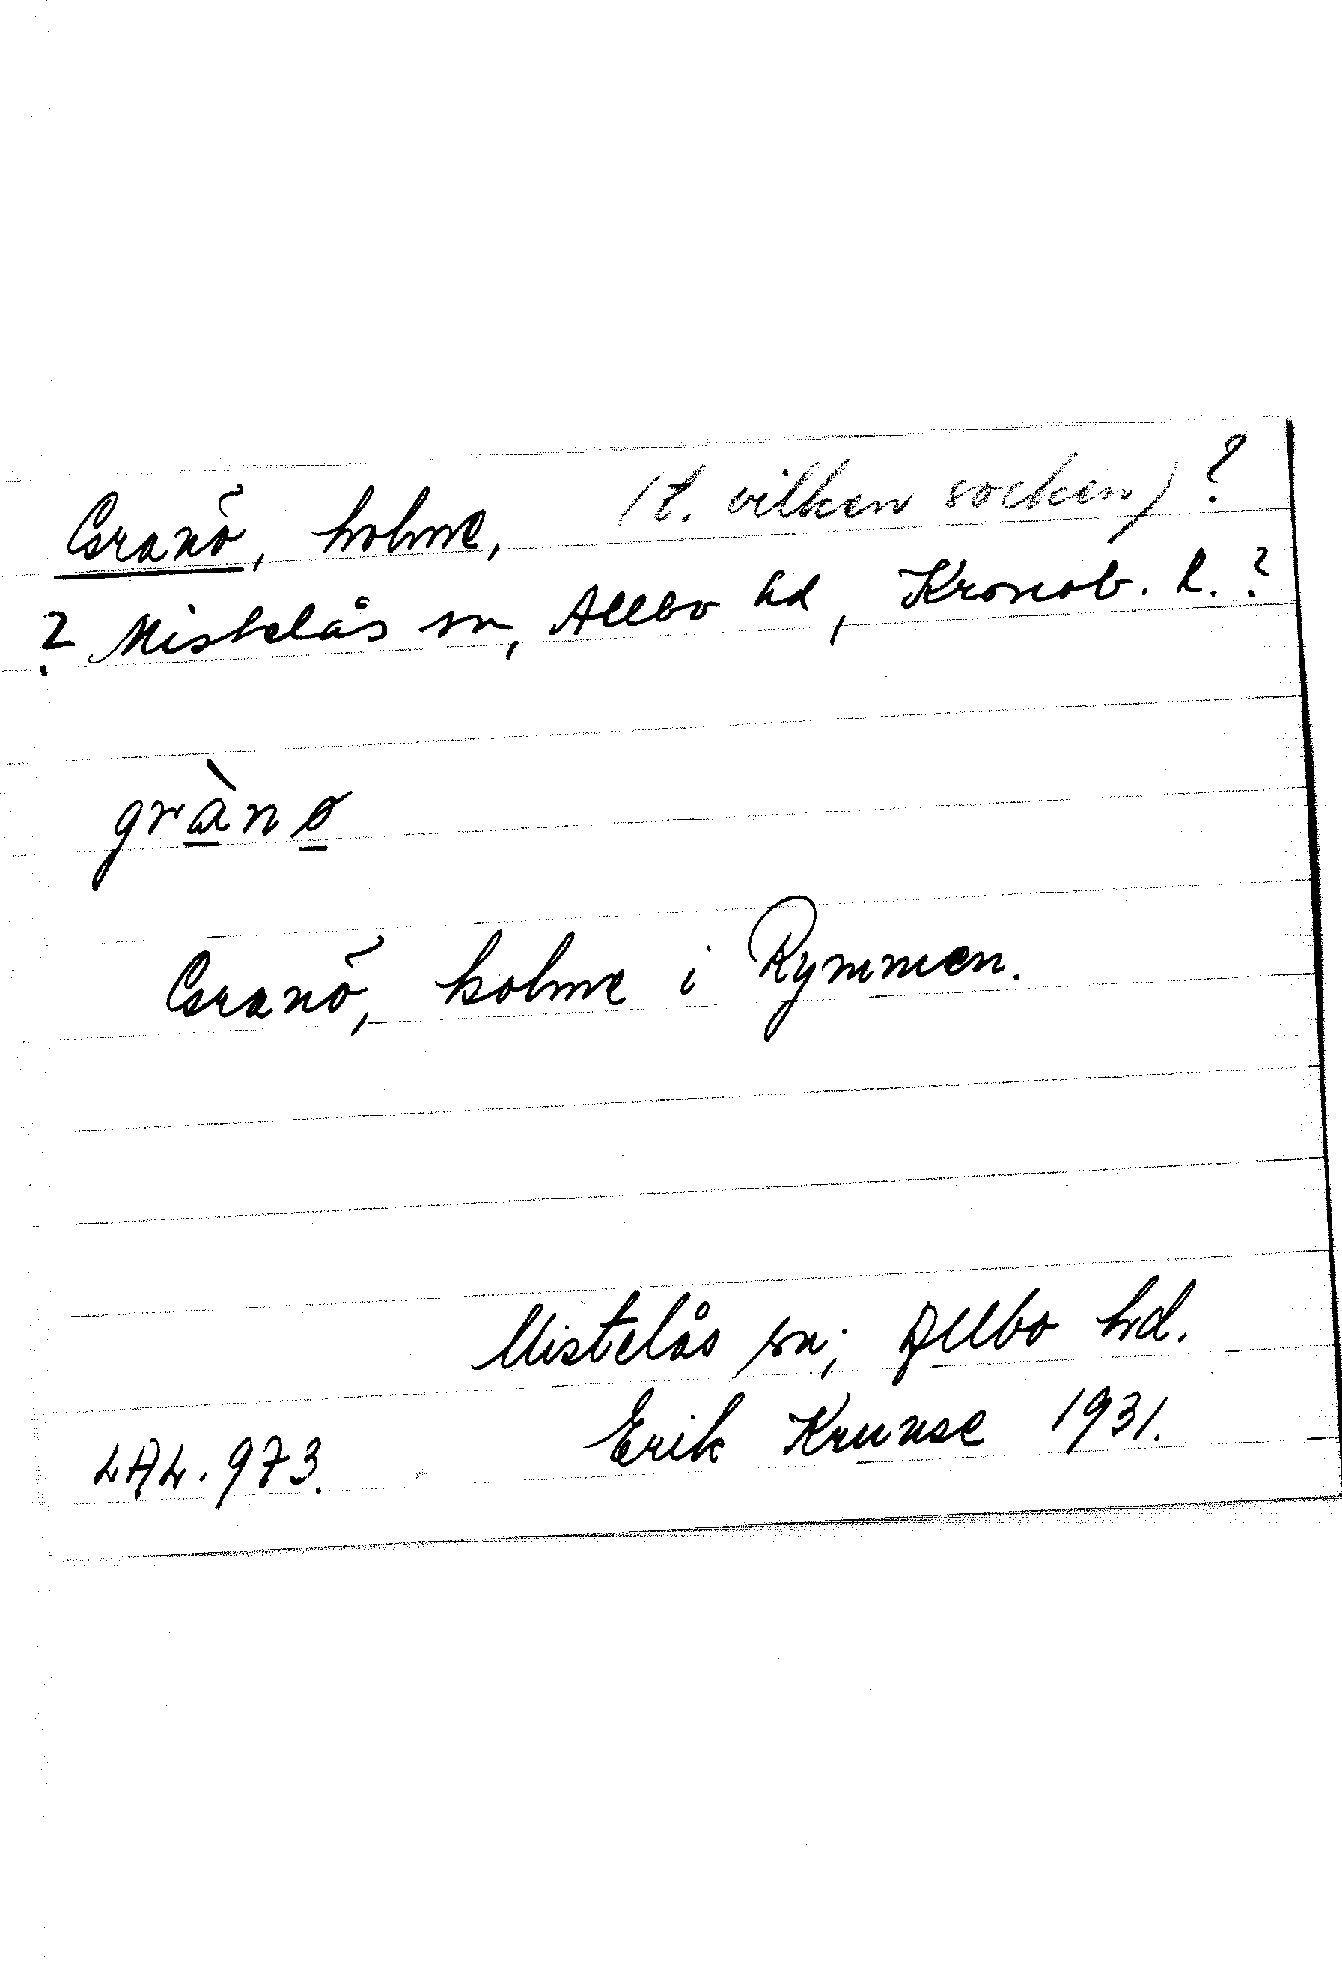 Granö, holme, (t. vilken socken)?
? Mistelås sn, Allbo hd, Kronob. l.?
grànø
Granö, holme i Rymmen.
Mistelås sn; Allbo hd.
LAL. 973. Erik Krunse 1931.